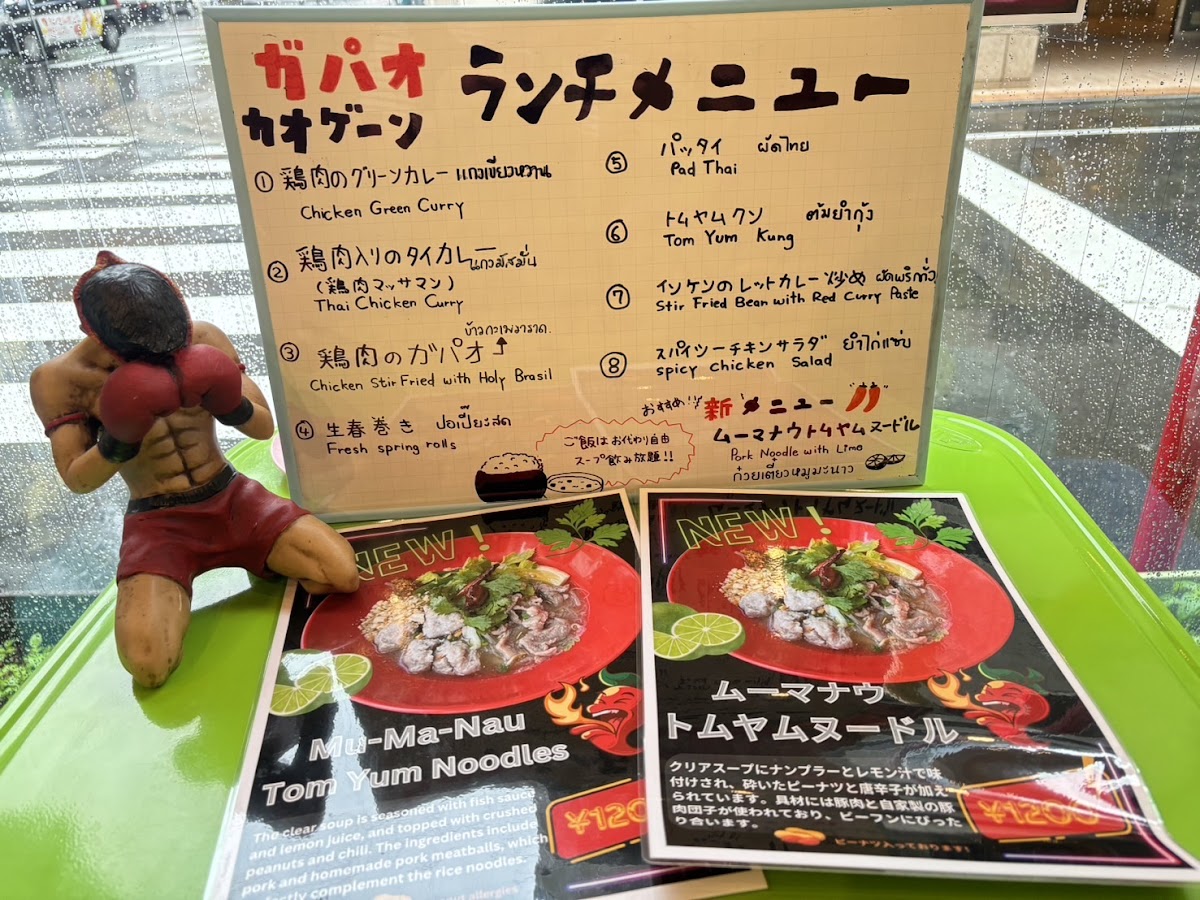 ガパオ
カオゲーン
ランチメニュー
① 鶏肉のグリーンカレー แกงเขียวหวาน
Chicken Green Curry
② 鶏肉入りのタイカレー แกงมัสมั่น
(鶏肉マッサマン)
Thai Chicken Curry
ข้าวกะเพราราด
③ 鶏肉のガパオ
Chicken Stir Fried with Holy Brasil
④ 生春巻き ปอเปี๊ยะสด
Fresh spring rolls
⑤ パッタイ ผัดไทย
Pad Thai
⑥ トムヤムクン ต้มยำกุ้ง
Tom Yum Kung
⑦ インゲンのレットカレー炒め ผัดพริกถั่ว
Stir Fried Bean with Red Curry Paste
⑧ スパイツーチキンサラダ ยำไก่แซ่บ
spicy chicken Salad
ご飯はお代わり自由
スープ飲み放題!!
おすすめ!! 新メニュー
ムーマナウトムヤムヌードル
Pork Noodle with Lime
ก๋วยเตี๋ยวหมูมะนาว
NEW!
Mu-Ma-Nau
Tom Yum Noodles
The clear soup is seasoned with fish sauce
and lemon juice, and topped with crushed
peanuts and chili. The ingredients include
pork and homemade pork meatballs, which
complement the rice noodles.
allergies
¥120
NEW!
ムーマナウ
トムヤムヌードル
クリアスープにナンプラーとレモン汁で味
付けされ、砕いたピーナツと唐辛子が加え
られています。具材には豚肉と自家製の豚
肉団子が使われており、ビーフンにぴった
り合います。
ピーナツ入っております!
¥1200